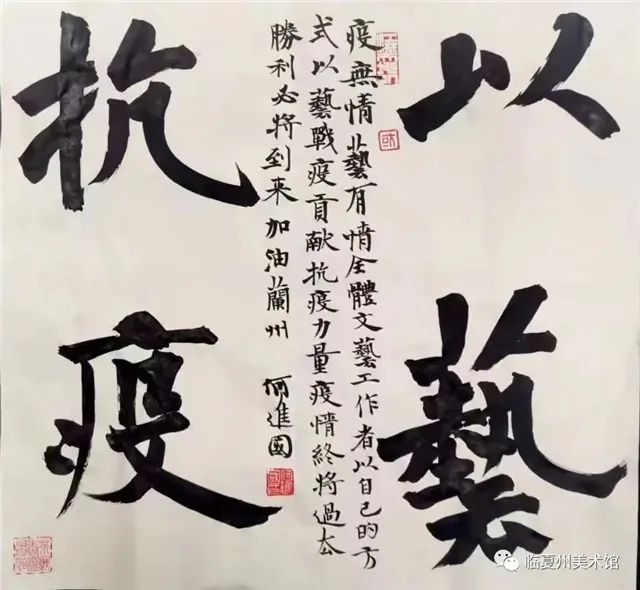 以藝
疫無情藝有情全體文藝工作者以自己的方
式以藝戰疫貢献抗疫力量疫情終将過去
勝利必将到来加油蘭州
何進國
抗疫
临夏州美术馆